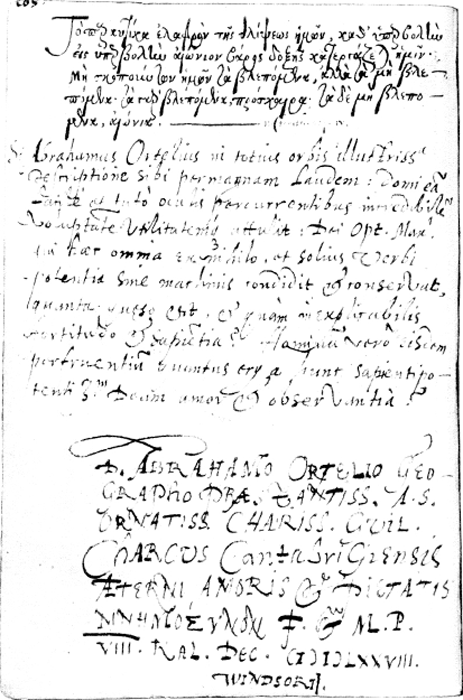 Τὸ παραυτίκα ἐλαφρὸν τῆς θλίψεως ἡμῶν, καθ' ὑπερβολὴν
εἰς ὑπερβολὴν αἰώνιον βάρος δόξης κατεργάζεται ἡμῖν·
Μὴ σκοπούντων ἡμῶν τὰ βλεπόμενα, ἀλλὰ τὰ μὴ βλε-
πόμενα· τὰ γὰρ βλεπόμενα, πρόσκαιρα· τὰ δὲ μὴ βλεπό-
μενα, αἰώνια.
Si Abrahamus Ortelius in totius orbis illustriss
descriptione sibi permagnam Laudem: domi eã
et tutò oculis percurrentibus incredibilẽ
voluptatẽ utilitatemq attulit: Dei Opt. Max.
qui haec omnia ex nihilo, et solius Verbi
potentia sine machinis condidit & conservat,
quanta quaeso est, & quàm inexplicabilis
fortitudo & sapiẽtia? Hominũ verò eisdem
perfruentiũ quantus erga hunc sapientipo-
tentiss.um Deum amor & observantia?
D. ABRAHAMO ORTELIO GEO-
GRAPHO PRÆSTANTISS. A.S.
ORNATISS. CHARISS. GUIL.
CHARCUS Cantabrigiensis
ÆTERNI AMORIS & PIETATIS
ΜΝΗΜΟΣΥΝΟΝ P. & M.P.
VIII. KAL. DEC. CIƆIƆLXXVIII.
WINDSORII.